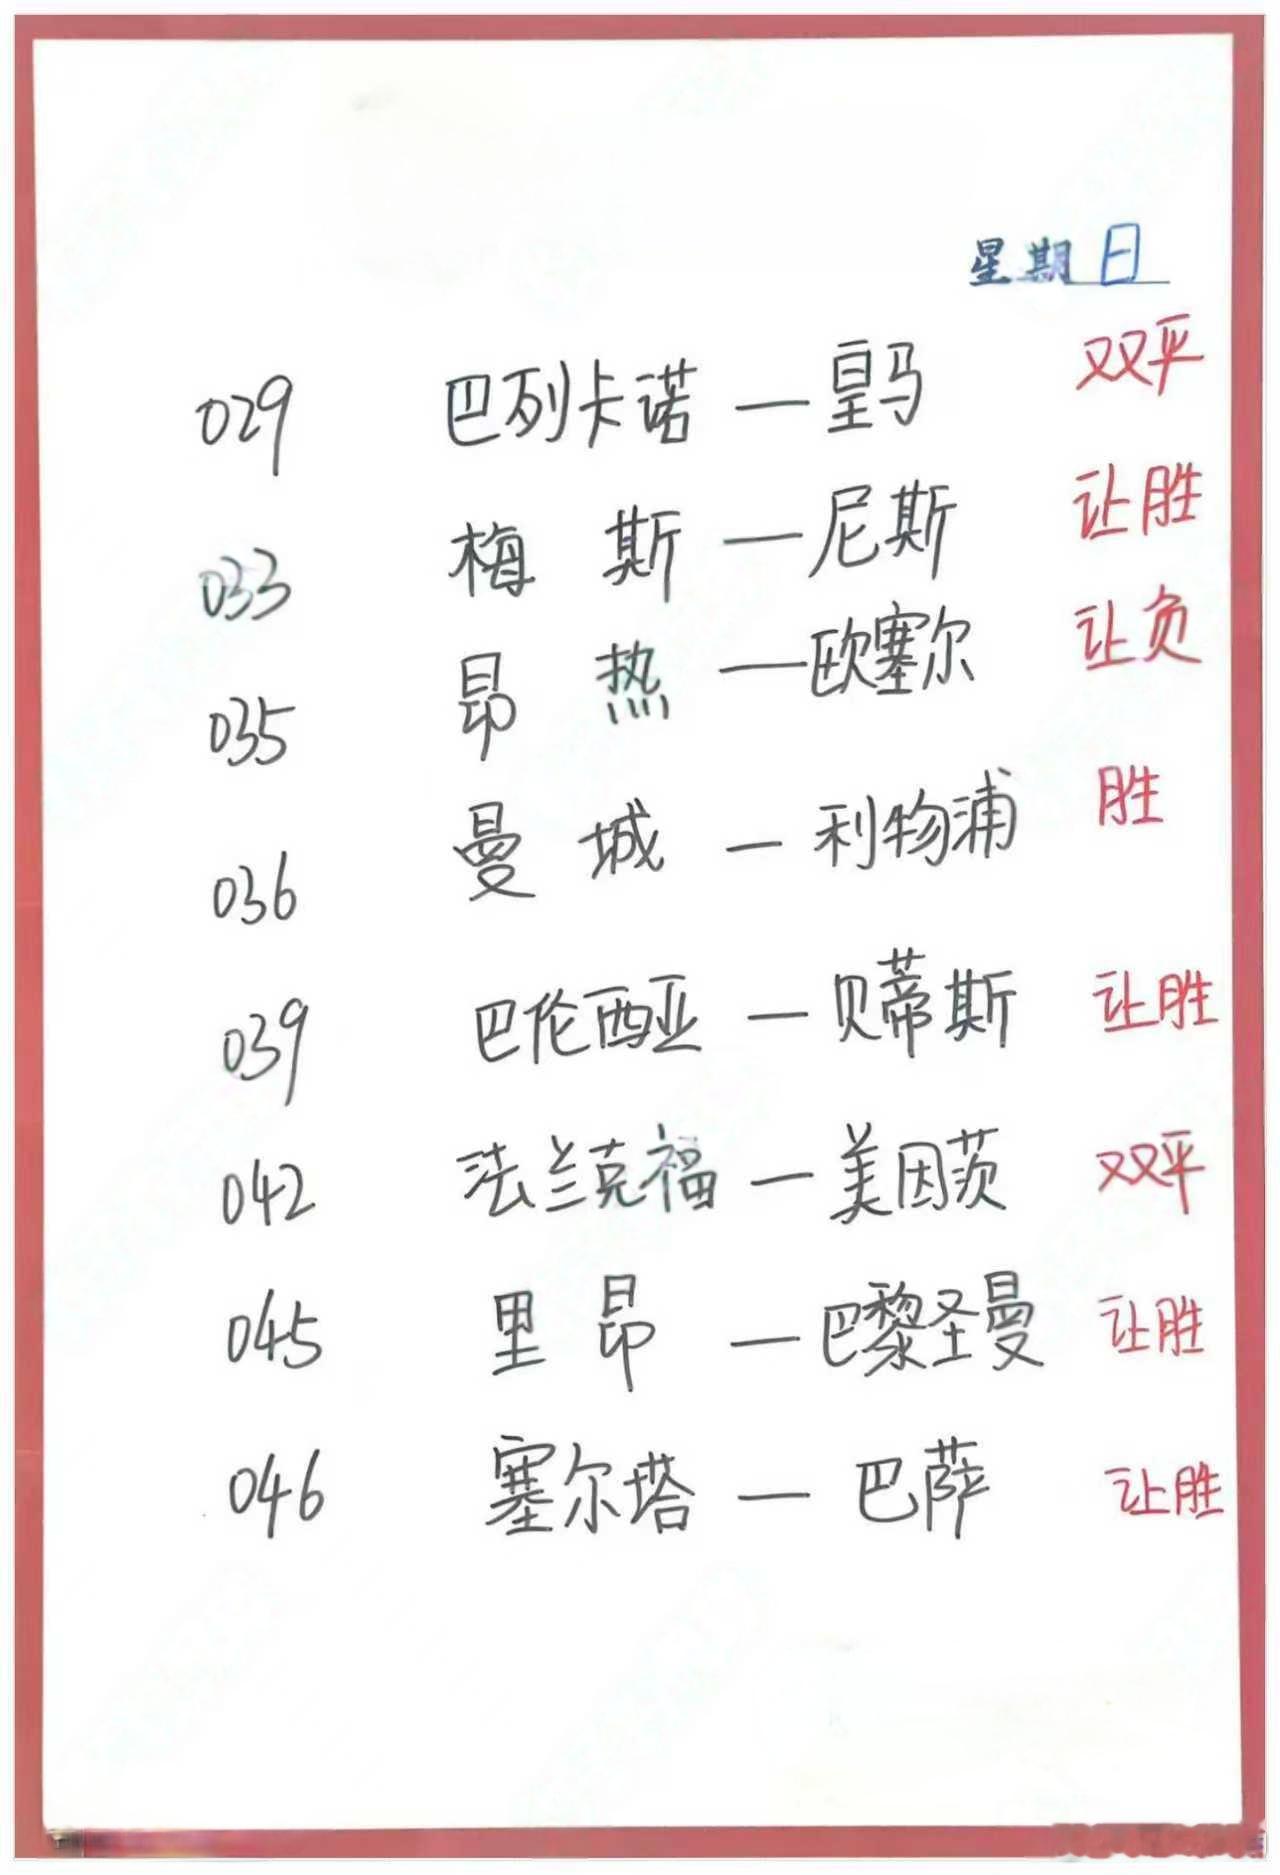 星期日
029 巴列卡诺—皇马 双平
033 梅斯—尼斯 让胜
035 昂热—欧塞尔 让负
036 曼城—利物浦 胜
039 巴伦西亚—贝蒂斯 让胜
042 法兰克福—美因茨 双平
045 里昂—巴黎圣曼 让胜
046 塞尔塔—巴萨 让胜